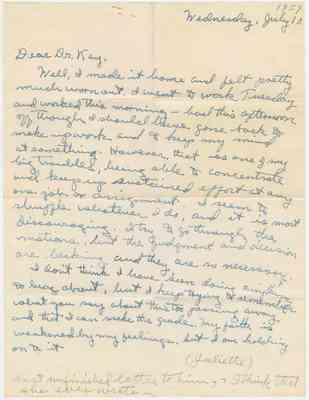 1959
Wednesday, July 1
Dear Dr. Kay,
Well, I made it home and felt pretty
much worn out. I went to work Tuesday
and worked this morning - had this afternoon
off though I should have gone back to
make up work and to keep my mind
at something. However, that is one of my
big troubles, being able to concentrate
and keep up sustained effort at any
one job or assignment. I seem to
struggle whatever I do, and it is most
discouraging. I try to go through the
motions, but the judgment and decision
are lacking and they are so necessary.
I don't think I have been doing
so here about, but I keep trying to remember
what you say about this to passing away,
and that I can make the grade. My faith is
weakened by my feelings, but I am holding
on to it
(Juliette)
unfinished letter to him, I think that
she ever wrote